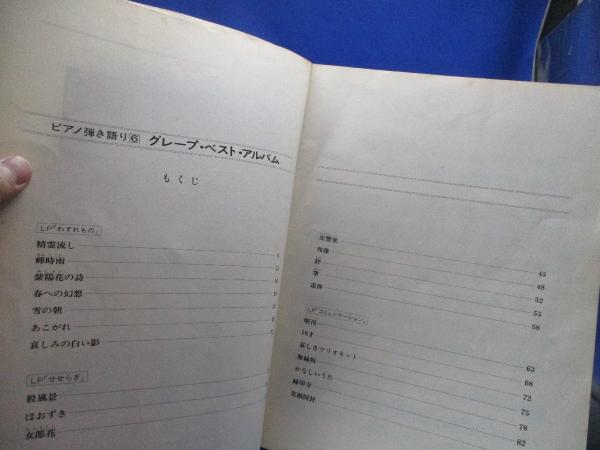 ピアノ弾き語り⑥ グレープ・ベスト・アルバム
もくじ
LP「わすれもの」
精霊流し
蟬時雨
紫陽花の詩
春への幻想
雪の朝
あこがれ
哀しみの白い影
LP「せせらぎ」
殺風景
ほおずき
女郎花
交響楽 45
残像 48
絆 52
掌 55
追伸 58
LP「コミュニケーション」
朝刊 63
19才 68
哀しきマリオネット 72
無縁坂 75
かなしいうた 78
縁切寺 82